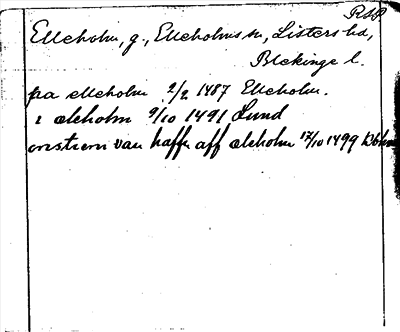 RAP
Elleholm, g., Elleholms sn, Listers hd,
Blekinge l.
paa elleholm 2/2 1487 Elleholm.
i æleholm 9/10 1491 Lund
van haffn aff æleholm 17/10 1499